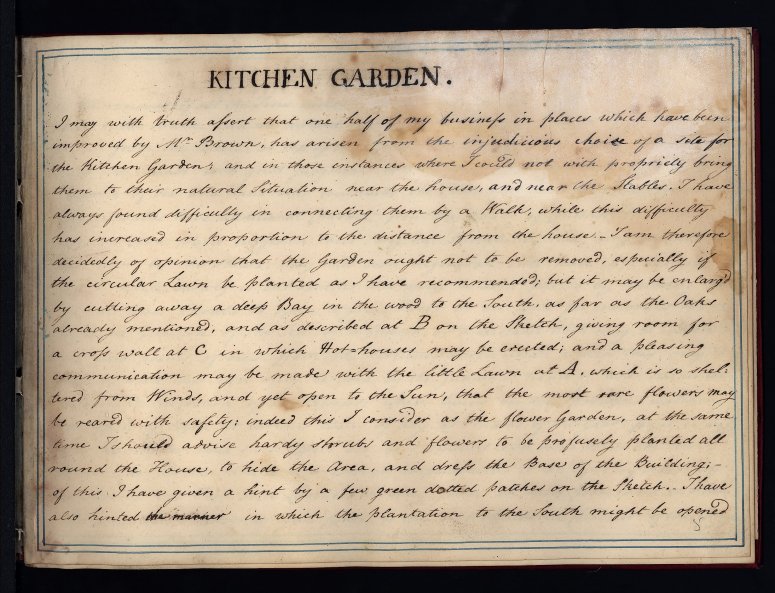 KITCHEN GARDEN.
I may with truth assert that one half of my business in places which have been
improved by Mr Brown, has arisen from the injudicious choice of a site for
the Kitchen Garden; and in those instances where I could not with propriety bring
them to their natural Situation near the house, and near the Stables. I have
always found difficulty in connecting them by a Walk, while this difficulty
has increased in proportion to the distance from the house_ I am therefore
decidedly of opinion that the Garden ought not to be removed, especially if
the circular Lawn be planted as I have recommended; but it may be enlarg'd
by cutting away a deep Bay in the wood to the South, as far as the Oaks
already mentioned, and as described at B on the Sketch, giving room for
a cross wall at C in which Hot=houses may be erected; and a pleasing
communication may be made with the little Lawn at A, which is so shel:
tered from Winds, and yet open to the Sun, that the most rare flowers may
be reared with safety: indeed this I consider as the flower Garden, at the same
time I should advise hardy shrubs and flowers to be profusely planted all
round the House, to hide the Area, and dress the Base of the Building;_
of this I have given a hint by a few green dotted patches on the Sketch._ I have
also hinted the manner in which the plantation to the South might be opened